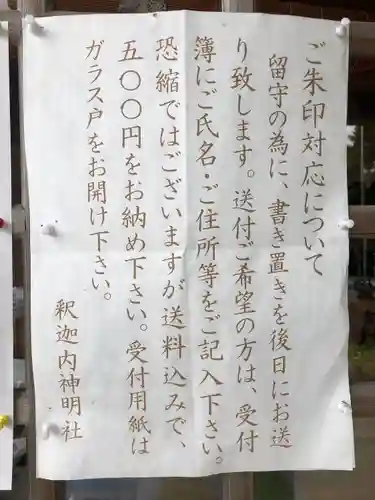 ご朱印対応について
留守の為に、書き置きを後日にお送
り致します。送付ご希望の方は、受付
簿にご氏名・ご住所等をご記入下さい。
恐縮ではございますが送料込みで、
五〇〇円をお納め下さい。受付用紙は
ガラス戸をお開け下さい。
釈迦内神明社